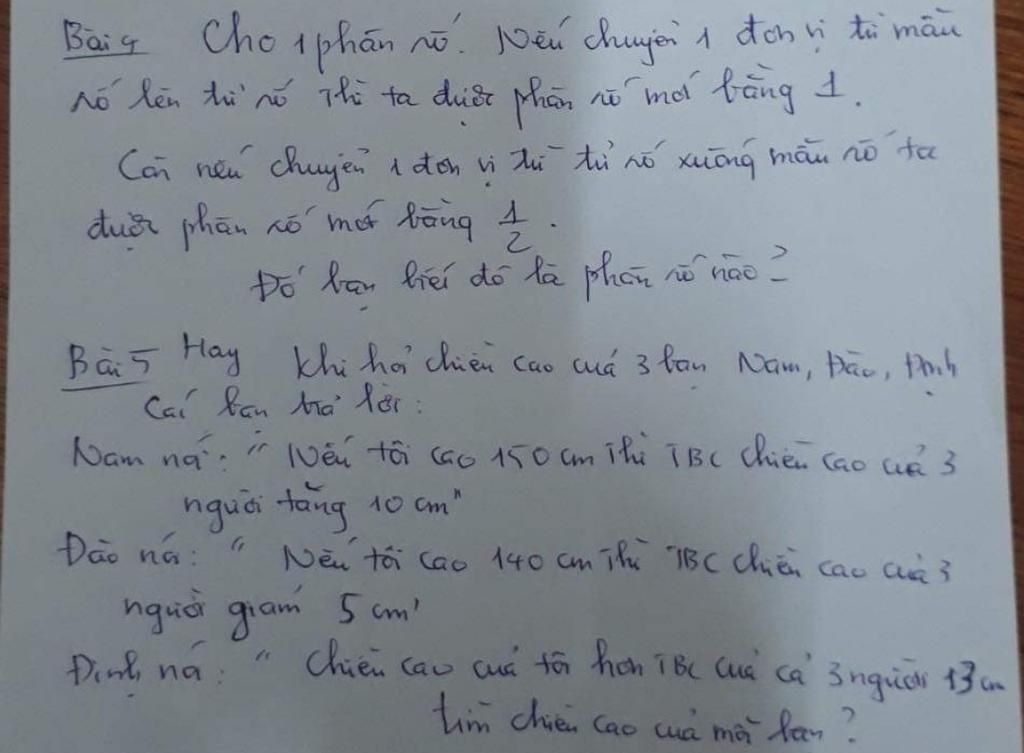 Bài 4 Cho 1 phân số. Nếu chuyển 1 đơn vị từ mẫu
số lên tử số thì ta được phân số mới bằng 1.
Còn nếu chuyển 1 đơn vị từ tử số xuống mẫu số ta
được phân số mới bằng 1/2.
Đố bạn biết đó là phân số nào?
Bài 5 Hay Khi hỏi chiều cao của 3 bạn Nam, Đào, Định
Các bạn trả lời:
Nam nói: "Nếu tôi cao 150 cm thì TBC chiều cao của 3
người tăng 10 cm"
Đào nói: "Nếu tôi cao 140 cm thì TBC chiều cao của 3
người giảm 5 cm"
Định nói: "Chiều cao của tôi hơn TBC của cả 3 người 13 cm
tìm chiều cao của mỗi bạn?